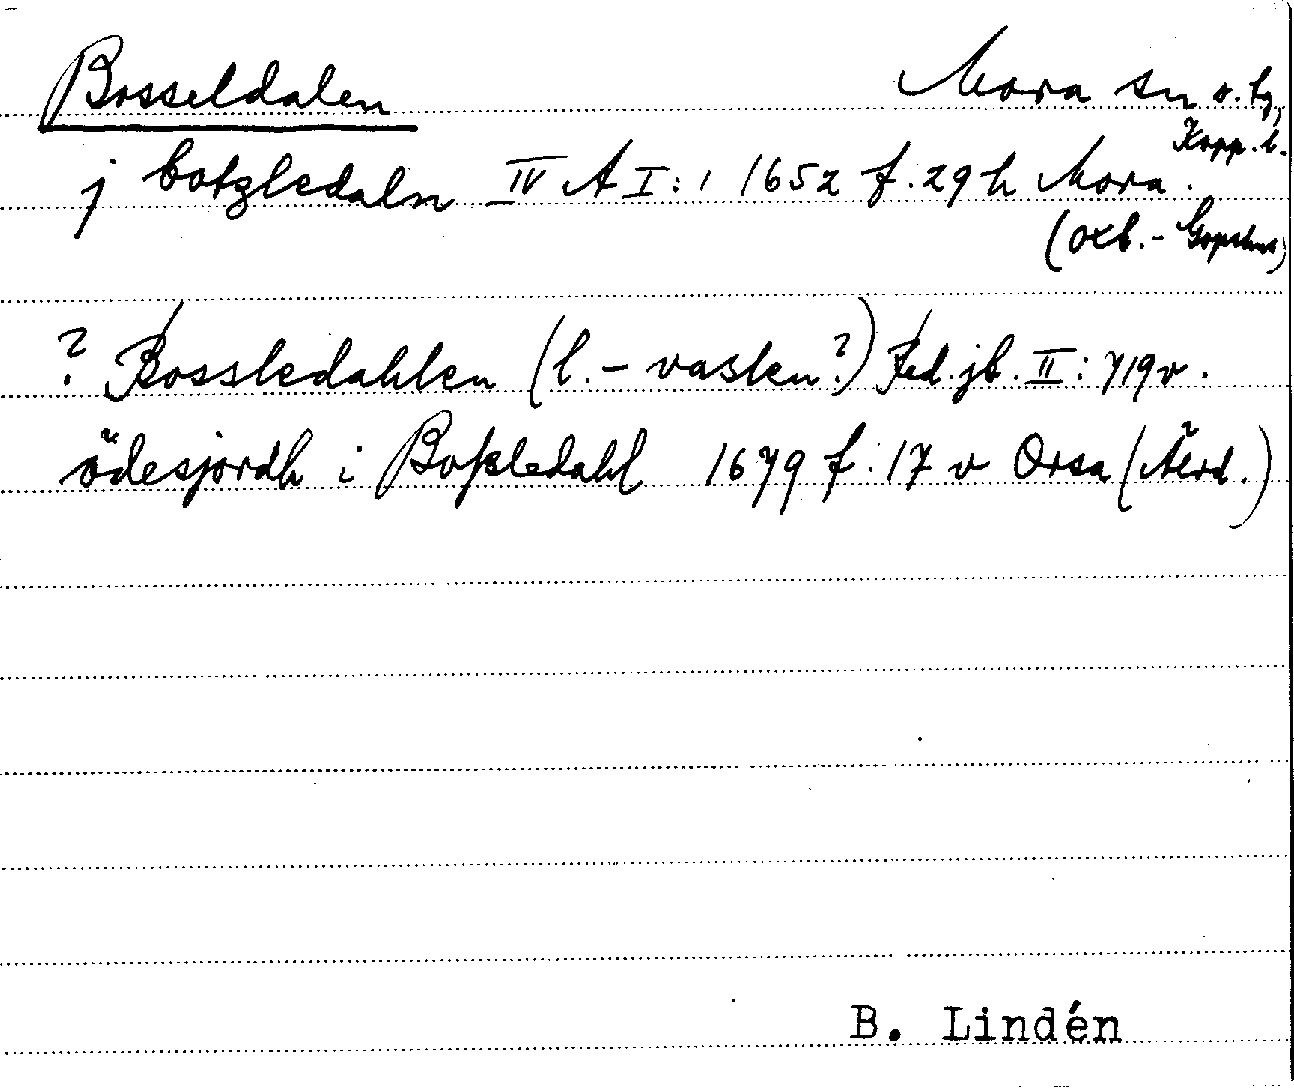 Bosseldalen Mora sn o. tg,
Kopp. l.
j botzledaln IV A I:1 1652 f. 29 h Mora.
(oxb. - Gopshus)
? Bossledahlen (l. - vaslen?) Red. jb. II: 719 v.
ödesjordh i Bossledahl 1679 f. 17 v Orsa (Åerd.)
B. Lindén